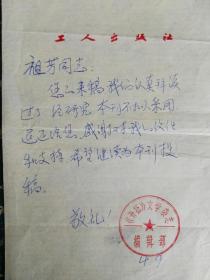 工人出版社
祖芳同志:
您的来稿,我们认真拜读
过了,经研究,本刊不拟采用
退还给您,感谢对我们的信任
和支持,希望继续为本刊投
稿。
敬礼!
编辑部
4.9